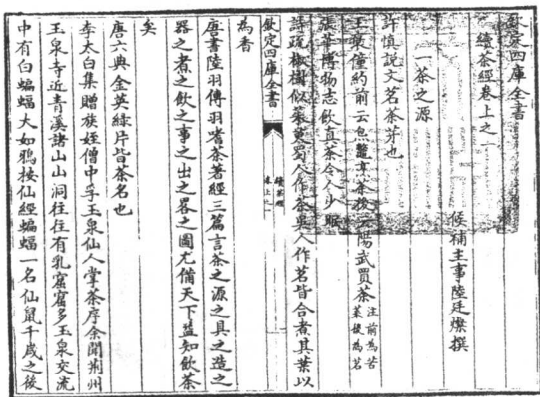 欽定四庫全書
續茶經卷上之
候補主事陸廷燦撰
一茶之源
許慎說文茗荼芽也
王褒僮約前云炰鼈烹茶後云陽武買茶注前為苦
菜後為茗
張華博物志飲真茶令人少眠
詩疏椒樹似茱萸蜀人作茶吳人作茗皆合煮其葉以
欽定四庫全書
續茶經
卷上之一
為香
唐書陸羽傳羽嗜茶著經三篇言茶之源之具之造之
器之煮之飲之事之出之畧之圖尤備天下益知飲茶
矣
唐六典金英綠片皆茶名也
李太白集贈族姪僧中孚玉泉仙人掌茶序余聞荊州
玉泉寺近青溪諸山山洞往往有乳窟窟多玉泉交流
中有白蝙蝠大如鴉按仙經蝙蝠一名仙鼠千歲之後